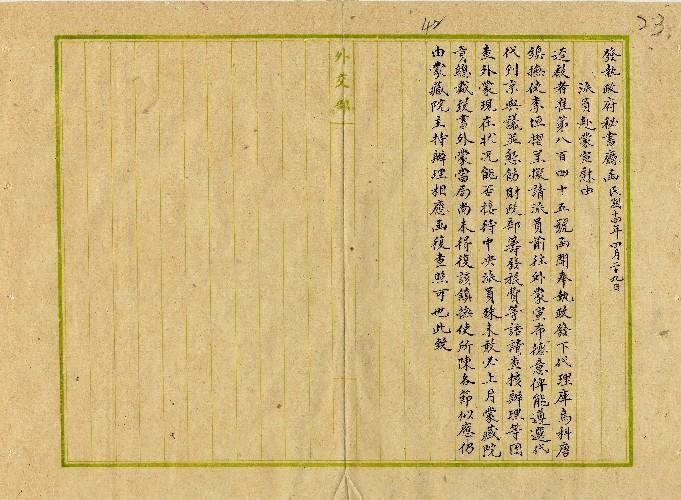 23.
42
發執政府秘書廳函 民國十四年四月廿九日
派員赴蒙宣慰由
逕啟者准第八百四十五號函開奉執政發下代理庫烏科唐
鎮撫使李垣摺呈擬請派員前往外蒙宣布德意俾能遵選代
代列席與議並懇飭財政部籌發旅費等語請查核辦理等因
查外蒙現在狀況能否接待中央派員殊未敢必上月蒙藏院
貢總裁致書外蒙當局尚未得復該鎮撫使所陳各節似應仍
由蒙藏院主持辦理相應函復查照可也此致
外交部